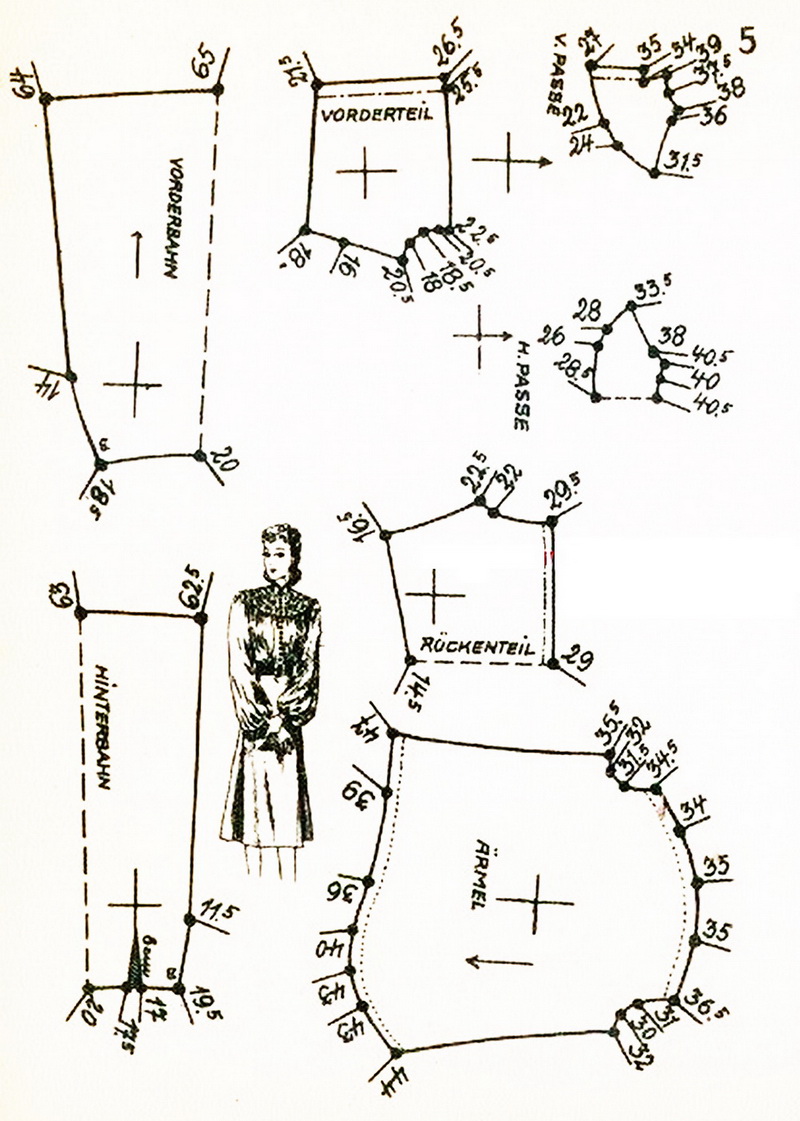 5
49
65
VORDERBAHN
14
8
18,5
20
21,5
26,5
25,5
VORDERTEIL
18,
16
20,5
18
18,5
20,5
22,5
V. PASSE
27
35
34
39
37,5
38
36
22
24
31,5
33,5
28
26
28,5
38
40,5
40
40,5
H. PASSE
22
29,5
19,5
RÜCKENTEIL
14,5
29
63
62,5
HINTERBAHN
11,5
8
20
17,5
17
19,5
47
39
36
40
43
43
44
ÄRMEL
35,5
32
31,5
34,5
34
35
35
36,5
31
30
32